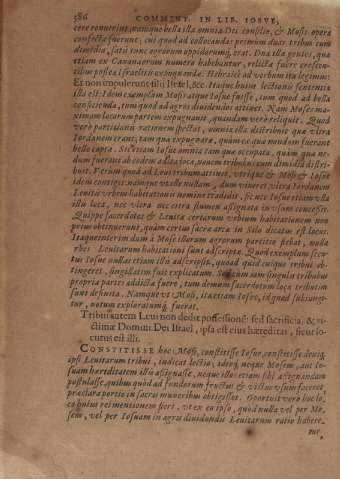 386 COMMENT. IN LIB. IOSVE,
cere renuerint, namque bella illa omnia Dei consilio, & Mosis opera
confecta fuerunt; cui quod ad collocandas primum duas tribus cum
dimidia, satis tunc agrorum oppidorumq. erat. Una illa gentes, qua
etiam ex Cananæorum numero habebantur, relicta fuere crescen-
tibus postea Israelitis expugnanda. Hebraicè ad verbum ita legimus:
Et non impulerunt filij Israel, &c. Itaque huius lectionis sententia
illa est: Idem exemplum Mosis atque Iosue fuisse, tum quod ad bella
conficienda, tum quod ad agros diuidendos attinet. Nam Moses ma-
ximam locorum partem expugnauit, quandam verò reliquit. Quod
vero partitionis rationem spectat, omnia illa distribuit quæ vltra
Iordanem erant; tam quæ expugnata, quàm ea quæ nondum fuerant
bello capta. Sic etiam Iosue omnia tam quæ occupata, quàm quæ no-
dum fuerant ab eodem adita loca, nouem tribubus cum dimidia distri-
buit. Verùm quod ad Leuitarum tribum attinet, vtrique & Mosi & Iosue
idem contigit: namque vt ille nullam, dum viueret, vltra Iordanem
Leuitis vrbem habitationis nomine tradidit, sic nec Iosue etiam vlla
illis loca, nec vltra nec citra flumen assignata in vsum concessit.
Quippe sacerdotes & Leuitæ certarum vrbium habitationem non
priùs obtinuerunt, quàm certus sacra arca in Silo dicatus est locus.
Itaque interim dum à Mose illorum agrorum partitio fiebat, nulla
vrbes Leuitarum habitationi sunt adscriptæ. Quod exemplum secu-
tus Iosue nullas etiam illis adscripsit, quoad quid cuique tribui ob-
tingeret, singillatim fuit explicatum. Sed cum iam singulis tribubus
propria partes addictæ fuere, tum demum sacerdotum loca tribulim
sunt definita. Namque vt Mosi, ita etiam Iosue, id quod subiungi-
tur, notum exploratumq. fuerat.
Tribui autem Leui non dedit possessionē: sed sacrificia, & vi-
ctimæ Domini Dei Israel, ipsa est eius hæreditas, sicut lo-
cutus est illi.
CONSTITISSE hoc Mosi, constitisse Iosue, constitisse deniq.
ipsi Leuitarum tribui, indicat lectio, ideoq. neque Mosem, aut Io-
suam hæreditatem illis assignasse, neque illos etiam sibi assignandam
postulasse, quibus quod ad fundorum fructus & victus vsum faceret,
præclara portio in sacris muneribus obtigisset. Oportuit verò hoc lo-
co huius rei mentionem fieri, vt ex eo ipso, quòd nulla vel per Mo-
sem, vel per Iosuam in agris diuidundis Leuitarum ratio habere-
tur,